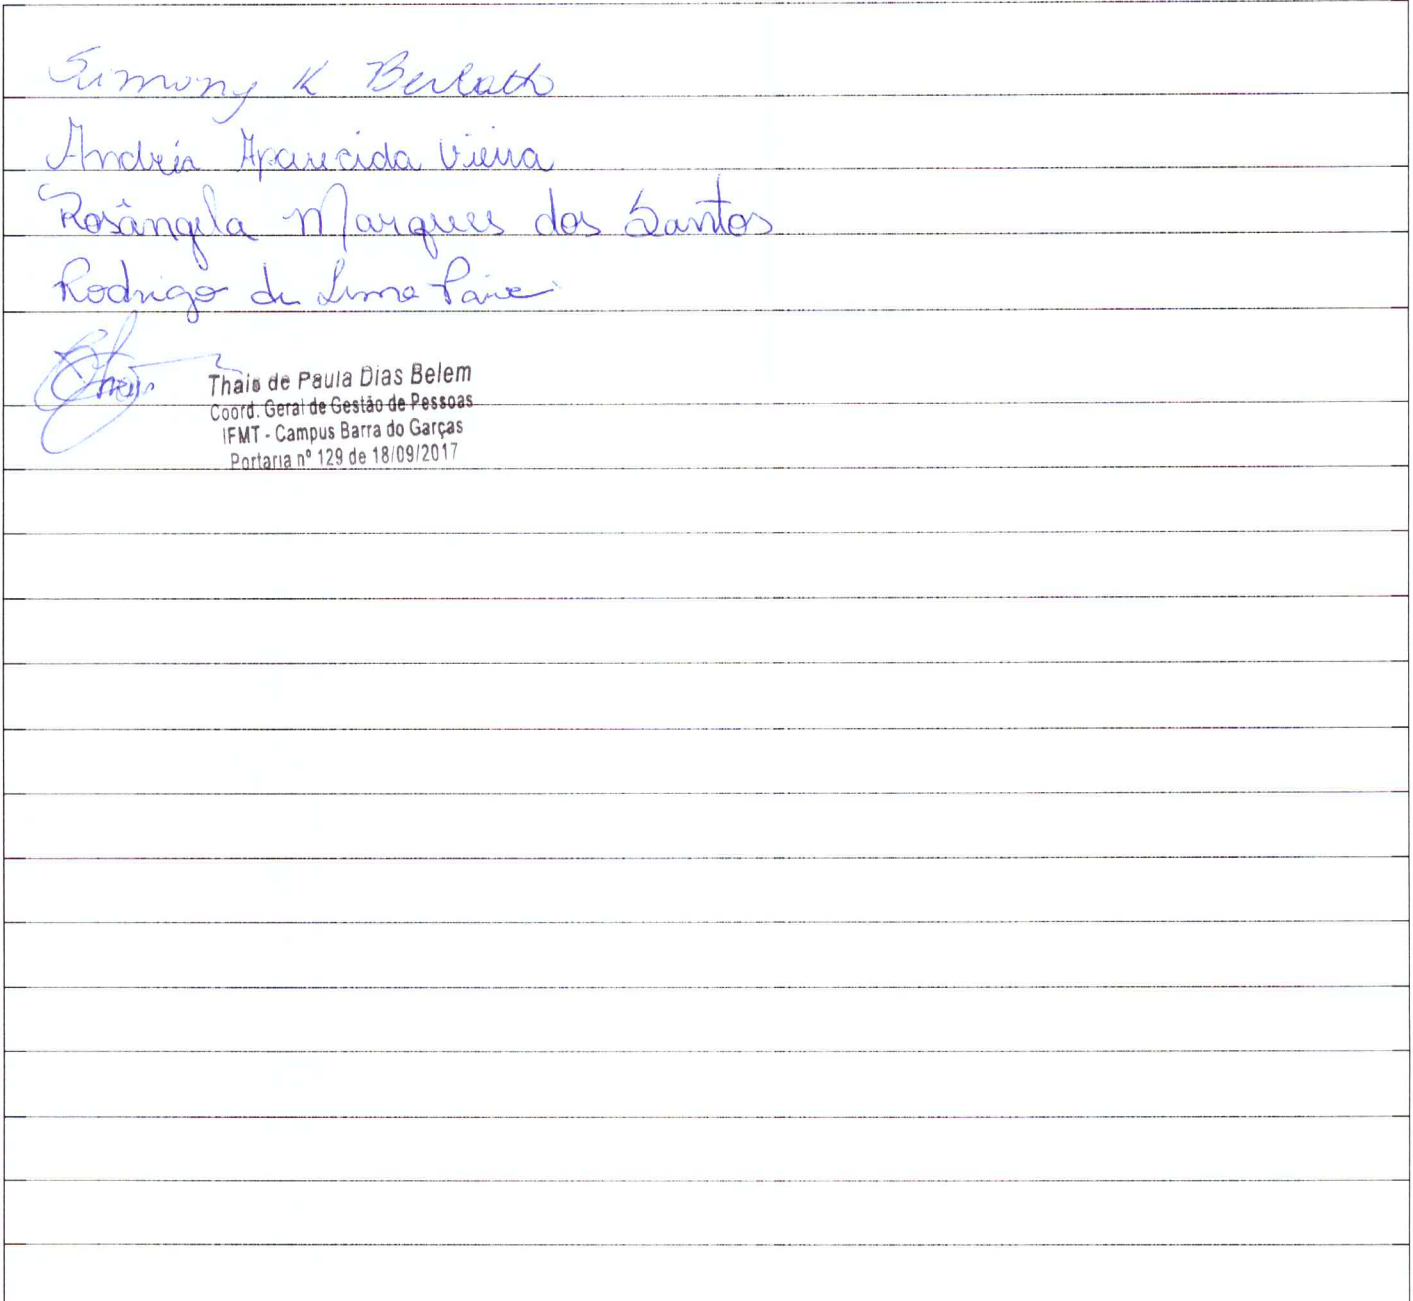 Simony K Berlath
Andréia Aparecida Vieira
Rosângela Marques dos Santos
Rodrigo de Lima Paiva
Thais de Paula Dias Belem
Coord. Geral de Gestão de Pessoas
IFMT - Campus Barra do Garças
Portaria nº 129 de 18/09/2017